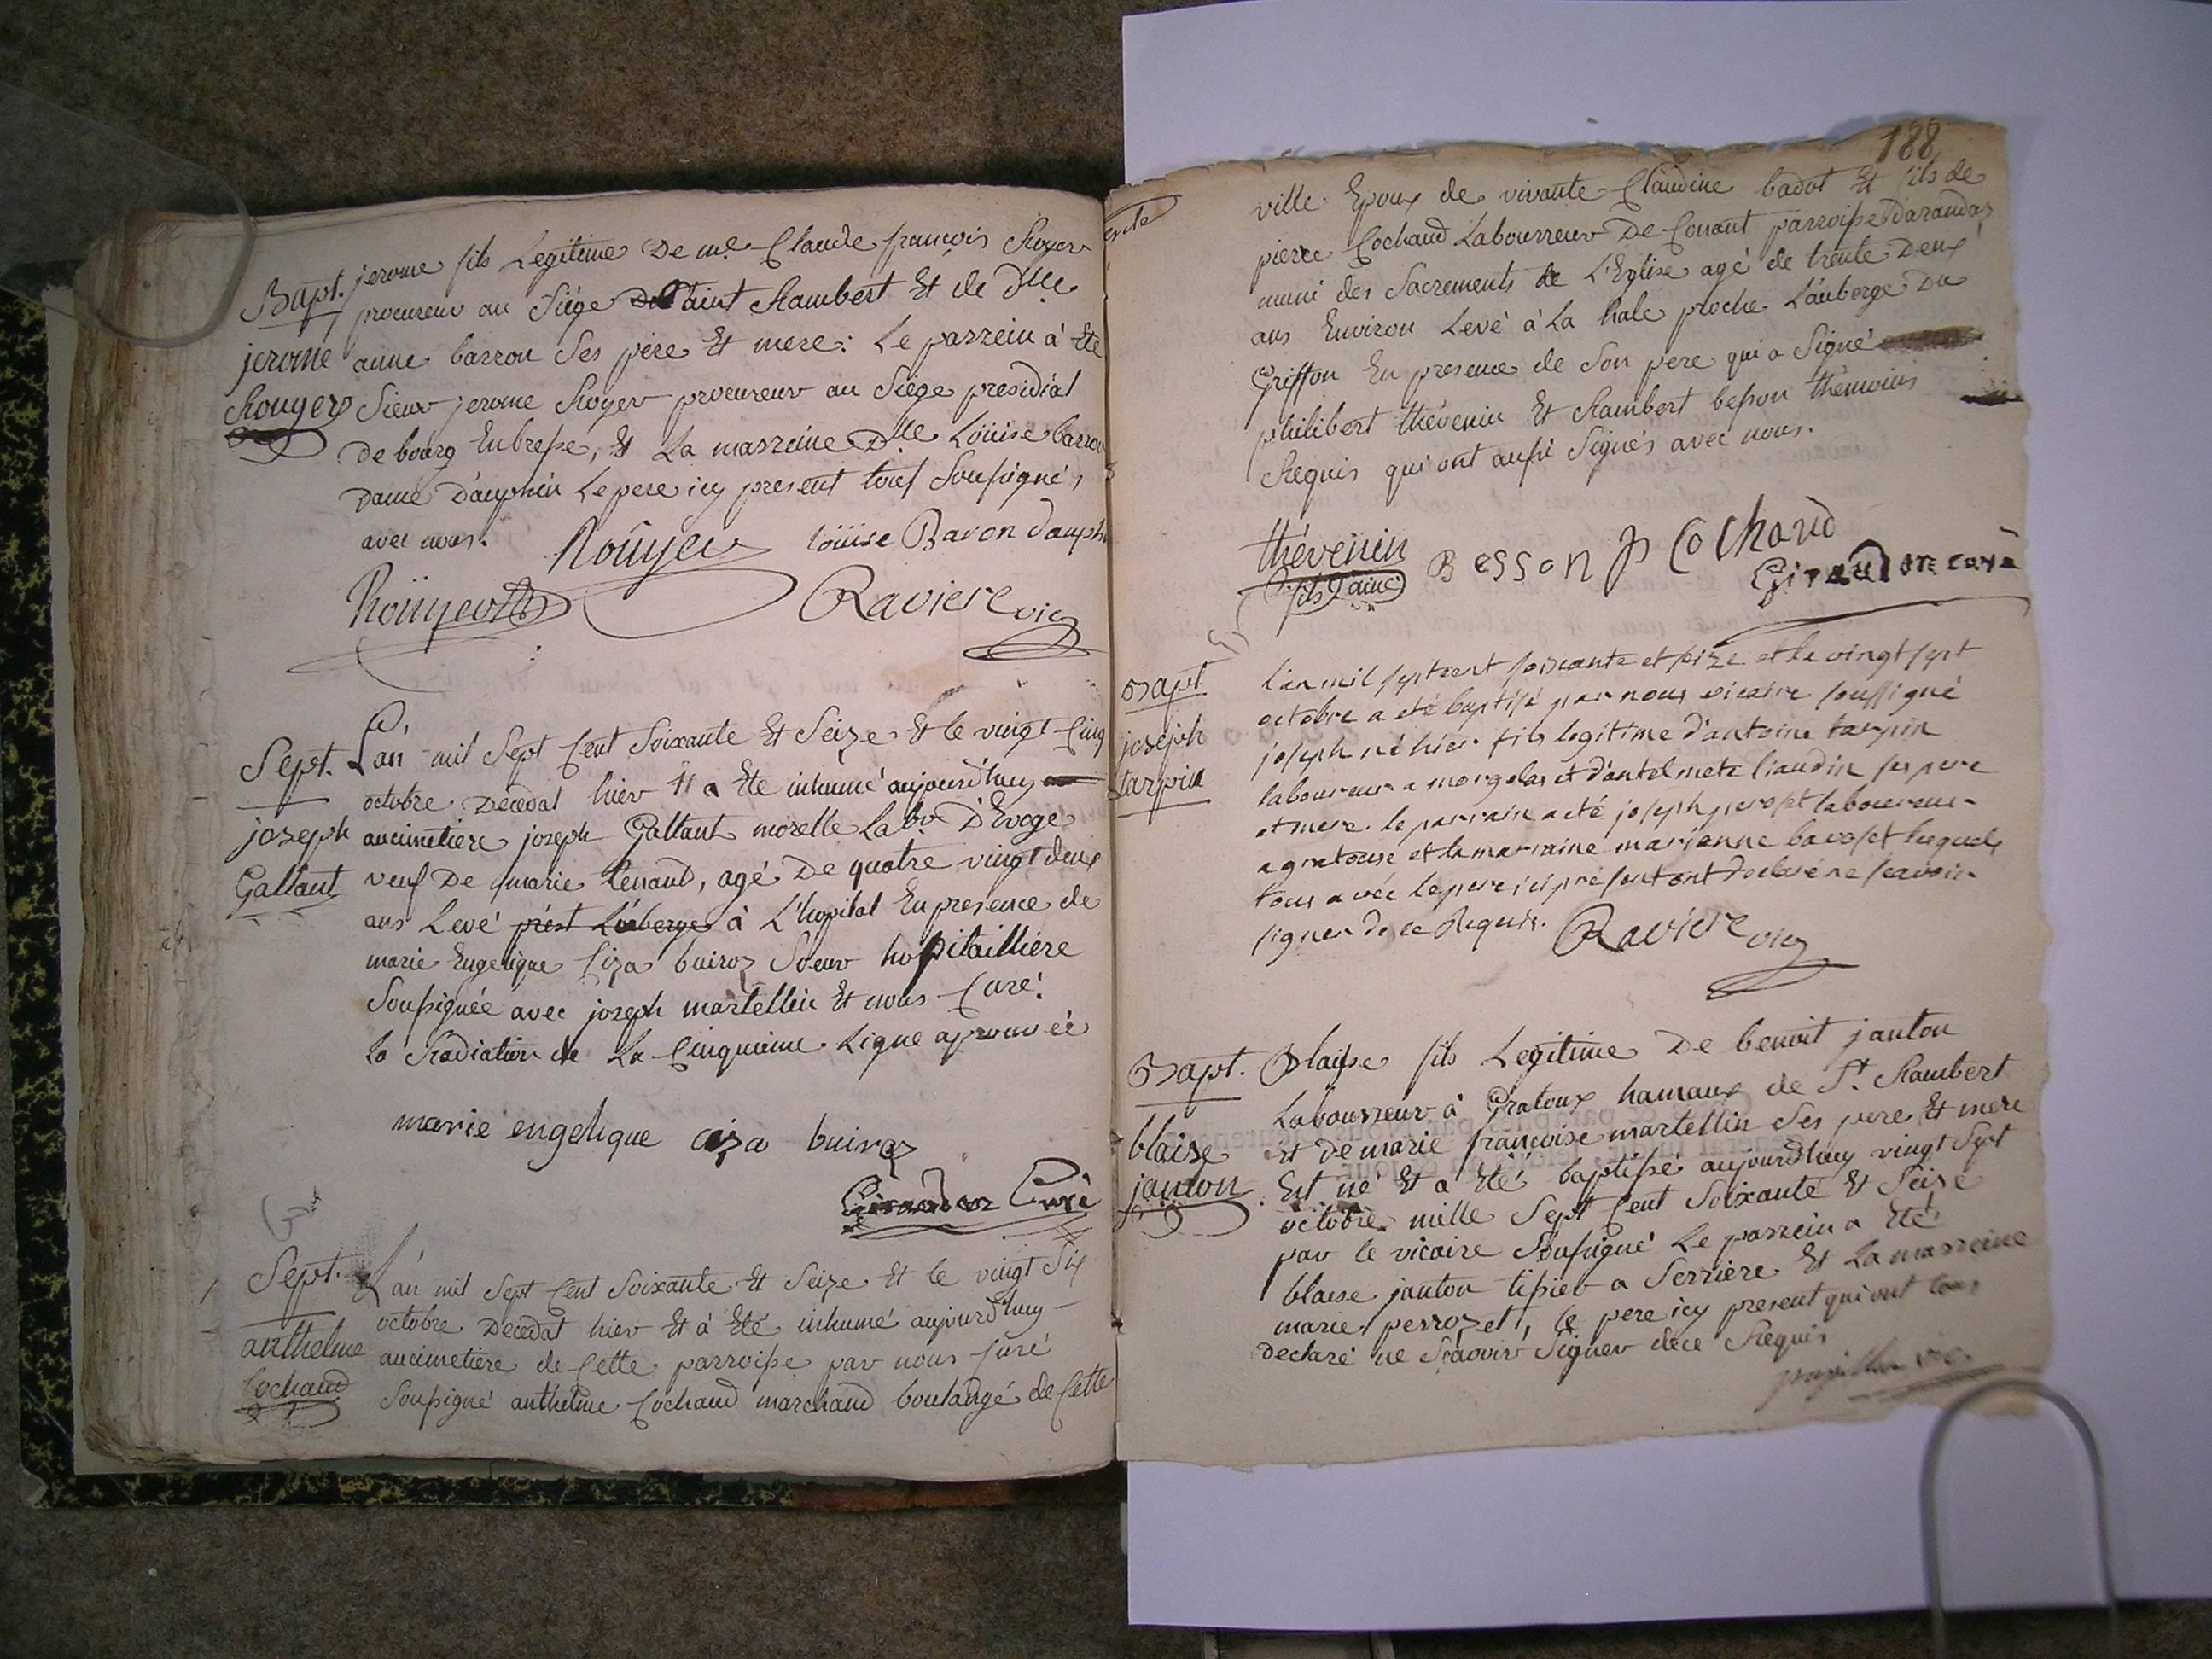 Bapt.
jerome
Rougers
jerome fils Legitime De me. Claude françois Royer
procureur au Siége De Saint Rambert Et de dlle
anne barron Ses père Et mere: Le parrein à Ete
Sieur jerome Royer procureur au Siége presidial
de bourg En bresse, Et La marreine Dlle Loüise barron
Dame D'auphin Le pere icy present tous Soussignés
avec nous.
Roüyer
loüise Baron dauphi
Roüyer
Raviere vic
Sept.
joseph
Gallant
L'an mil Sept Cent Soixante Et Seize Et le vingt Cinq
octobre Decedat hier Et a Ete inhumé aujourd'huy
au cimetiere joseph Gallant morelle Labr. D'Evoge
veuf De marie tenand, agé De quatre vingt deux
ans Levé prést L'auberge à L'hopital En presence de
marie Engelique Ciza buiroz Soeur hospitailliére
Soussignée avec joseph martellin Et nous Curé.
La Radiation de La Cinquieme Ligne aprouvée
marie engelique ciza buiroz
Giraudon Curé
Sept.
anthelme
Cochaud
L'an mil Sept Cent Soixante Et Seize Et le vingt Six
octobre Decedat hier Et à Eté inhumé aujourd'huy
au cimetiere de Cette parroisse par nous Curé
Soussigné anthelme Cochaud marchand boulangé de Cette
188
ville Epoux de vivante Claudine badot Et fils de
pierre Cochaud Labourreur De Conant parroisse darandas
muni des Sacrements de L'Eglise agé de trente Deux
ans Environ Levé à La hale proche L'auberge Du
Griffon En presence de Son pere qui a Signé
philibert thévenin Et Rambert besson thémoins
Requis qui ont aussi Signés avec nous.
thévenin
fils d'ainé
Besson
P Cochaud
Giraudon curé
Bapt
joseph
tarpin
l'an mil sept cent soixante et seize et le vingt sept
octobre a eté baptisé par nous vicaire soussigné
joseph né hier fils legitime d'antoine tarpin
laboureur a morgelas et d'antelmete liaudin ses pere
et mere. le parrain a eté joseph peroset laboureur
a gratoux et la marraine marianne bavoset lequels
tous avec le pere ici présent ont declaré ne scavoir
signer de ce Requis.
Raviere vic
Bapt.
blaise
janton
Blaise fils Legitime De benoit janton
Labourreur à Gratoux hamaux de St. Rambert
et De marie françoise martellin Ses pere Et mere
Est né Et a Eté baptissé aujourd'huy vingt Sept
octobre mille Sept Cent Soixante Et Seize
par le vicaire Soussigné Le parrein a Eté
blaise janton tissier a Serriere Et La marreine
marie perrozet, le pere icy present qui ont tous
Declaré ne Scavoir Signer dece Requis